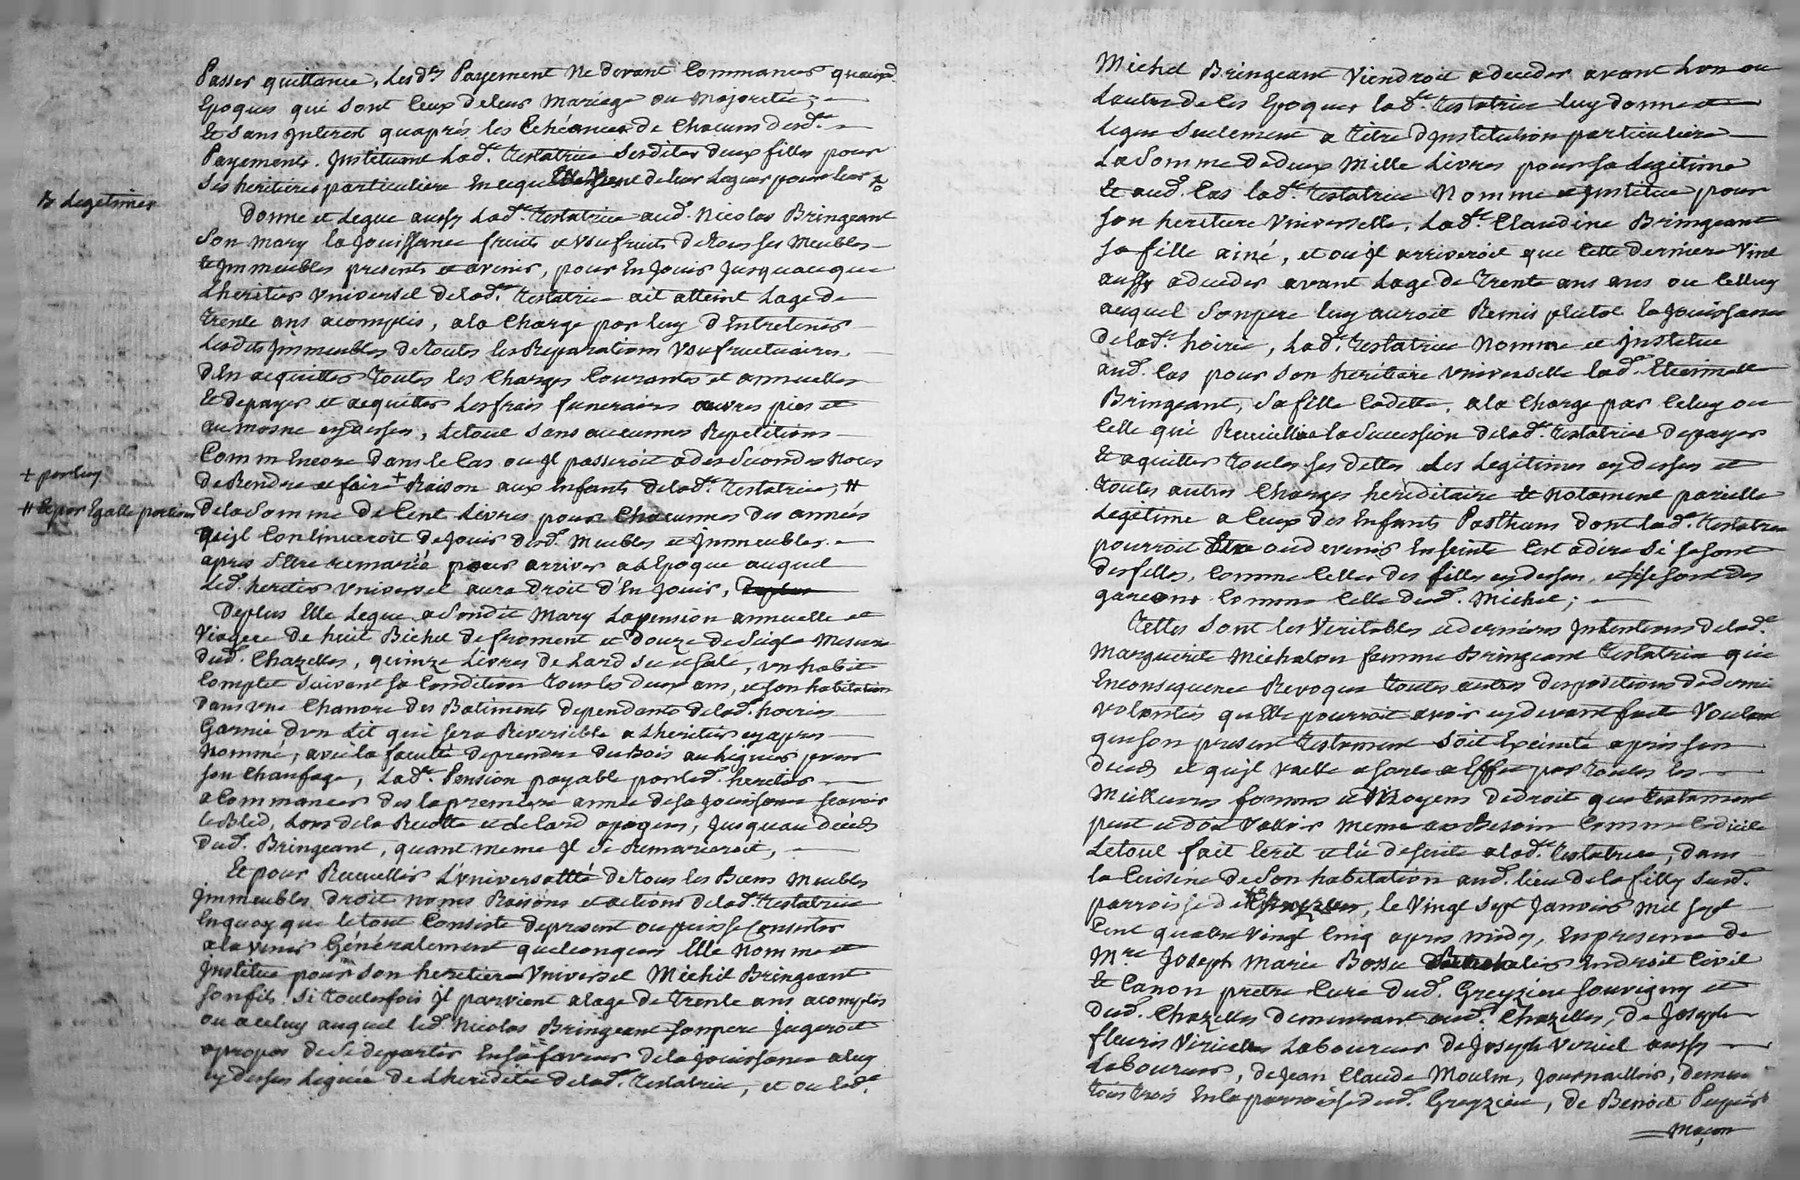 Passer quittance, Lesd.ts Payement Ne devant Commancer quauxd.
Epoques qui sont Ceux deleur Mariage ou Majorité; —
Et sans Interest quaprés les Echéances de Chacuns desd.ts —
Payements. Instituant Lad.te Testatrice Sesdites deux filles pour
Ses heritieres particuliere En ce que de leur Legue pour leur
B Legitimes
Donne et Legue aussy Lad.te Testatrice aud. Nicolas Bringeant
Son Mary la Jouissance fruits et Usufruits de tous ses Meubles
& Immeubles presents et avenir, pour En Jouir Jusquaceque
Lheritier Universel delad.te Testatrice ait atteint Lage de
trente ans acomplis, ala Charge par luy d'Entretenir
Lesdits Immeubles de toutes les Reparations Usufructuaires
d'En acquitter toutes les Charges Courantes et annuelles
Et depayer et acquitter Les frais funeraires œuvres pies et
aumosne cydessus, Letout sans aucunnes Repetitions
Comm Encore dans le Cas ou Il passeroit a des Secondes Noces
de Rendre et faire + Raison aux Enfants delad.te Testatrice, #
+ par luy
# Et par Egalle portions
dela Somme de Cent Livres pour Chacunnes des années
quil Continueroit de Jouir desd. Meubles et Immeubles
apres Sestre remarié pour arriver a LEpoque auquel
Led. heritier Universel aura droit d'En Jouir,
Deplus Elle Legue a Sondit Mary Lapension annuelle et
Viagere de huit Bichet de froment et douze de Seigle Mesure
dud. Chazelles, quinze Livres de Lard sec et salé, un habit
Complet Suivant sa Condition tous les deux ans, et son habitation
dans une Chambre des Batiments dependants delad.te hoirie
Garnie d'un Lit qui sera Reversible a Lheritier cy apres
Nommé, avec la faculté deprendre du Bois au bucher pour
son Chaufage, Lad.te Pension payable par led. heritier
a Commancer des la premiere année de sa Jouissance scavoir
le Bled, Lors de la Recolte et le lard apaques, Jusquau décéd
dud. Bringeant, quant meme Il se Remarieroit,
Et pour Recueillir L'universalité de tous les Biens Meubles
Immeubles droit noms Raisons et actions delad.te Testatrice
En quoy que le tout Consiste de present ou puisse Consister
a lavenir Généralement quelconques Elle Nomme et
Institue pour son heretier Universel Michel Bringeant
son fils. Si toutesfois Il parvient a lage de trente ans acomplis
ou aceluy auquel led. Nicolas Bringeant son pere Jugeroit
apropos de Se departir En sa faveur dela Jouissance aluy
cy dessus Leguée de Lheredité delad.te Testatrice, et ou led.
Michel Bringeant Viendroit a deceder avant Lun ou
Lautre de ces Epoques lad.te Testatrice luy donne et
legue Seulement a titre d'Institution particuliere
La Somme de deux Mille Livres pour sa Legitime
Et aud. Cas lad.te Testatrice Nomme et Institue pour
son heritiere Universelle, Lad.te Claudine Bringeant
sa fille ainé, et ou Il arriveroit que cette derniere Vint
aussy a deceder avant Lage de trente ans ou Celluy
auquel Son pere luy auroit Remis plutot la Jouissance
delad.te hoirie, Lad.te Testatrice Nomme et Institue
aud. Cas pour son heritiaire Universelle lad.te Etiennette
Bringeant, Sa fille Cadette, ala Charge par Celuy ou
Celle qui Recueillira la Succession delad.te Testatrice de payer
Et aquitter toutes ses dettes Les Legitimes cydessus et
toutes autres Charges hereditaire & notament pareille
Legitime a Ceux des Enfants Posthums dont lad.te Testatrice
pourroit Etre ou devenir Enseinte Cest adire Si ce sont
des filles, Comme Celles des filles cydessus, et si ce sont des
garcons Comme Celle dud. Michel; —
Telles sont les Veritables et dernieres Intentions delad.te
Marguerite Michalon femme Bringeant testatrice qui
En consequence Revoque toutes autres dispositions de derniere
volontés quElle pourroit avoir cy devant fait Voulant
que son present testament soit Execute apres son
décéd et quil vaille et sorte a Effet par toutes les
Meilleures formes et Moyens de droit que testament
peut et doit Valloir meme au Besoin Comme Codicile
Letout fait Lecte et lû de suite a lad.te testatrice, dans
la Cuisine de Son habitation aud. lieu de la filly susd.
parroisse de, le Vingt Sept Janvier Mil sept
Cent quatre vingt Cinq apres midy, En presence de
M.re Joseph Marie Bossu En droit Civil
& Canon pretre Cure dud. Greyzieu Souvigny et
dud. Chazelles demeurant aud. Chazelles, de Joseph
fleurie Laboureur de Joseph Vericel aussy
Laboureur, de Jean Claude Moulin, Journallier, demeurant
tous trois En la parroisse dud. Greyzieu, de Benoit
maçon